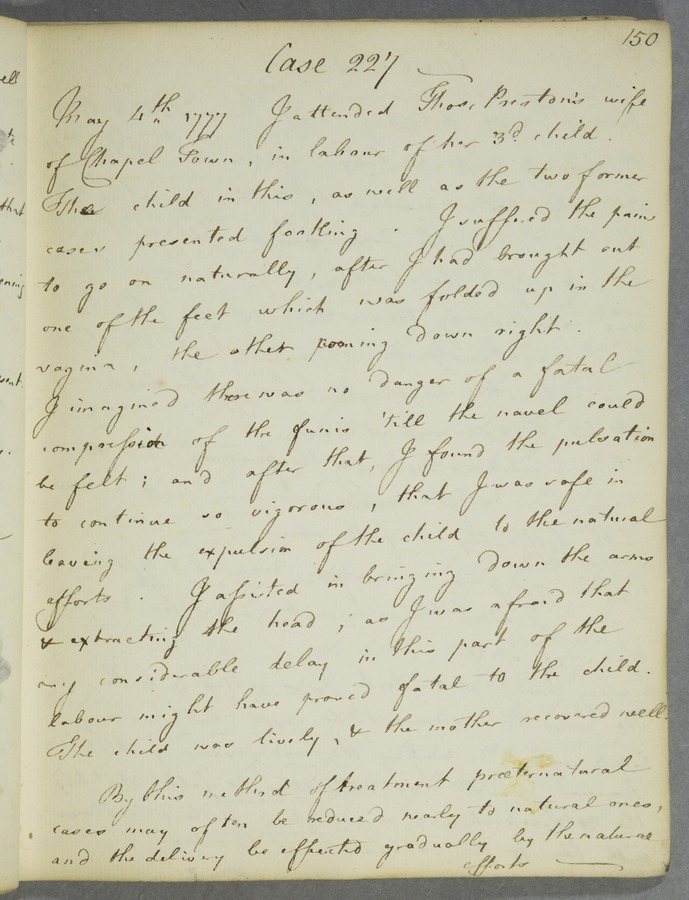 150
Case 227
May 4th 1777 I attended Thos. Preston's wife
of Chapel Town, in labour of her 3d. child.
The child in this, as well as the two former
cases presented footling. I suffered the pains
to go on naturally, after I had brought out
one of the feet which was folded up in the
vagina, the other coming down right.
I imagined there was no danger of a fatal
compression of the funis 'till the navel could
be felt; and after that, I found the pulsation
to continue so vigorous, that I was safe in
leaving the expulsion of the child to the natural
efforts. I assisted in bringing down the arms
& extracting the head; as I was afraid that
any considerable delay in this part of the
labour might have proved fatal to the child.
The child was lively, & the mother recovered well.
By this method of treatment præternatural
cases may often be reduced nearly to natural ones,
and the delivery be effected gradually by the natural
efforts
ell
that
ening